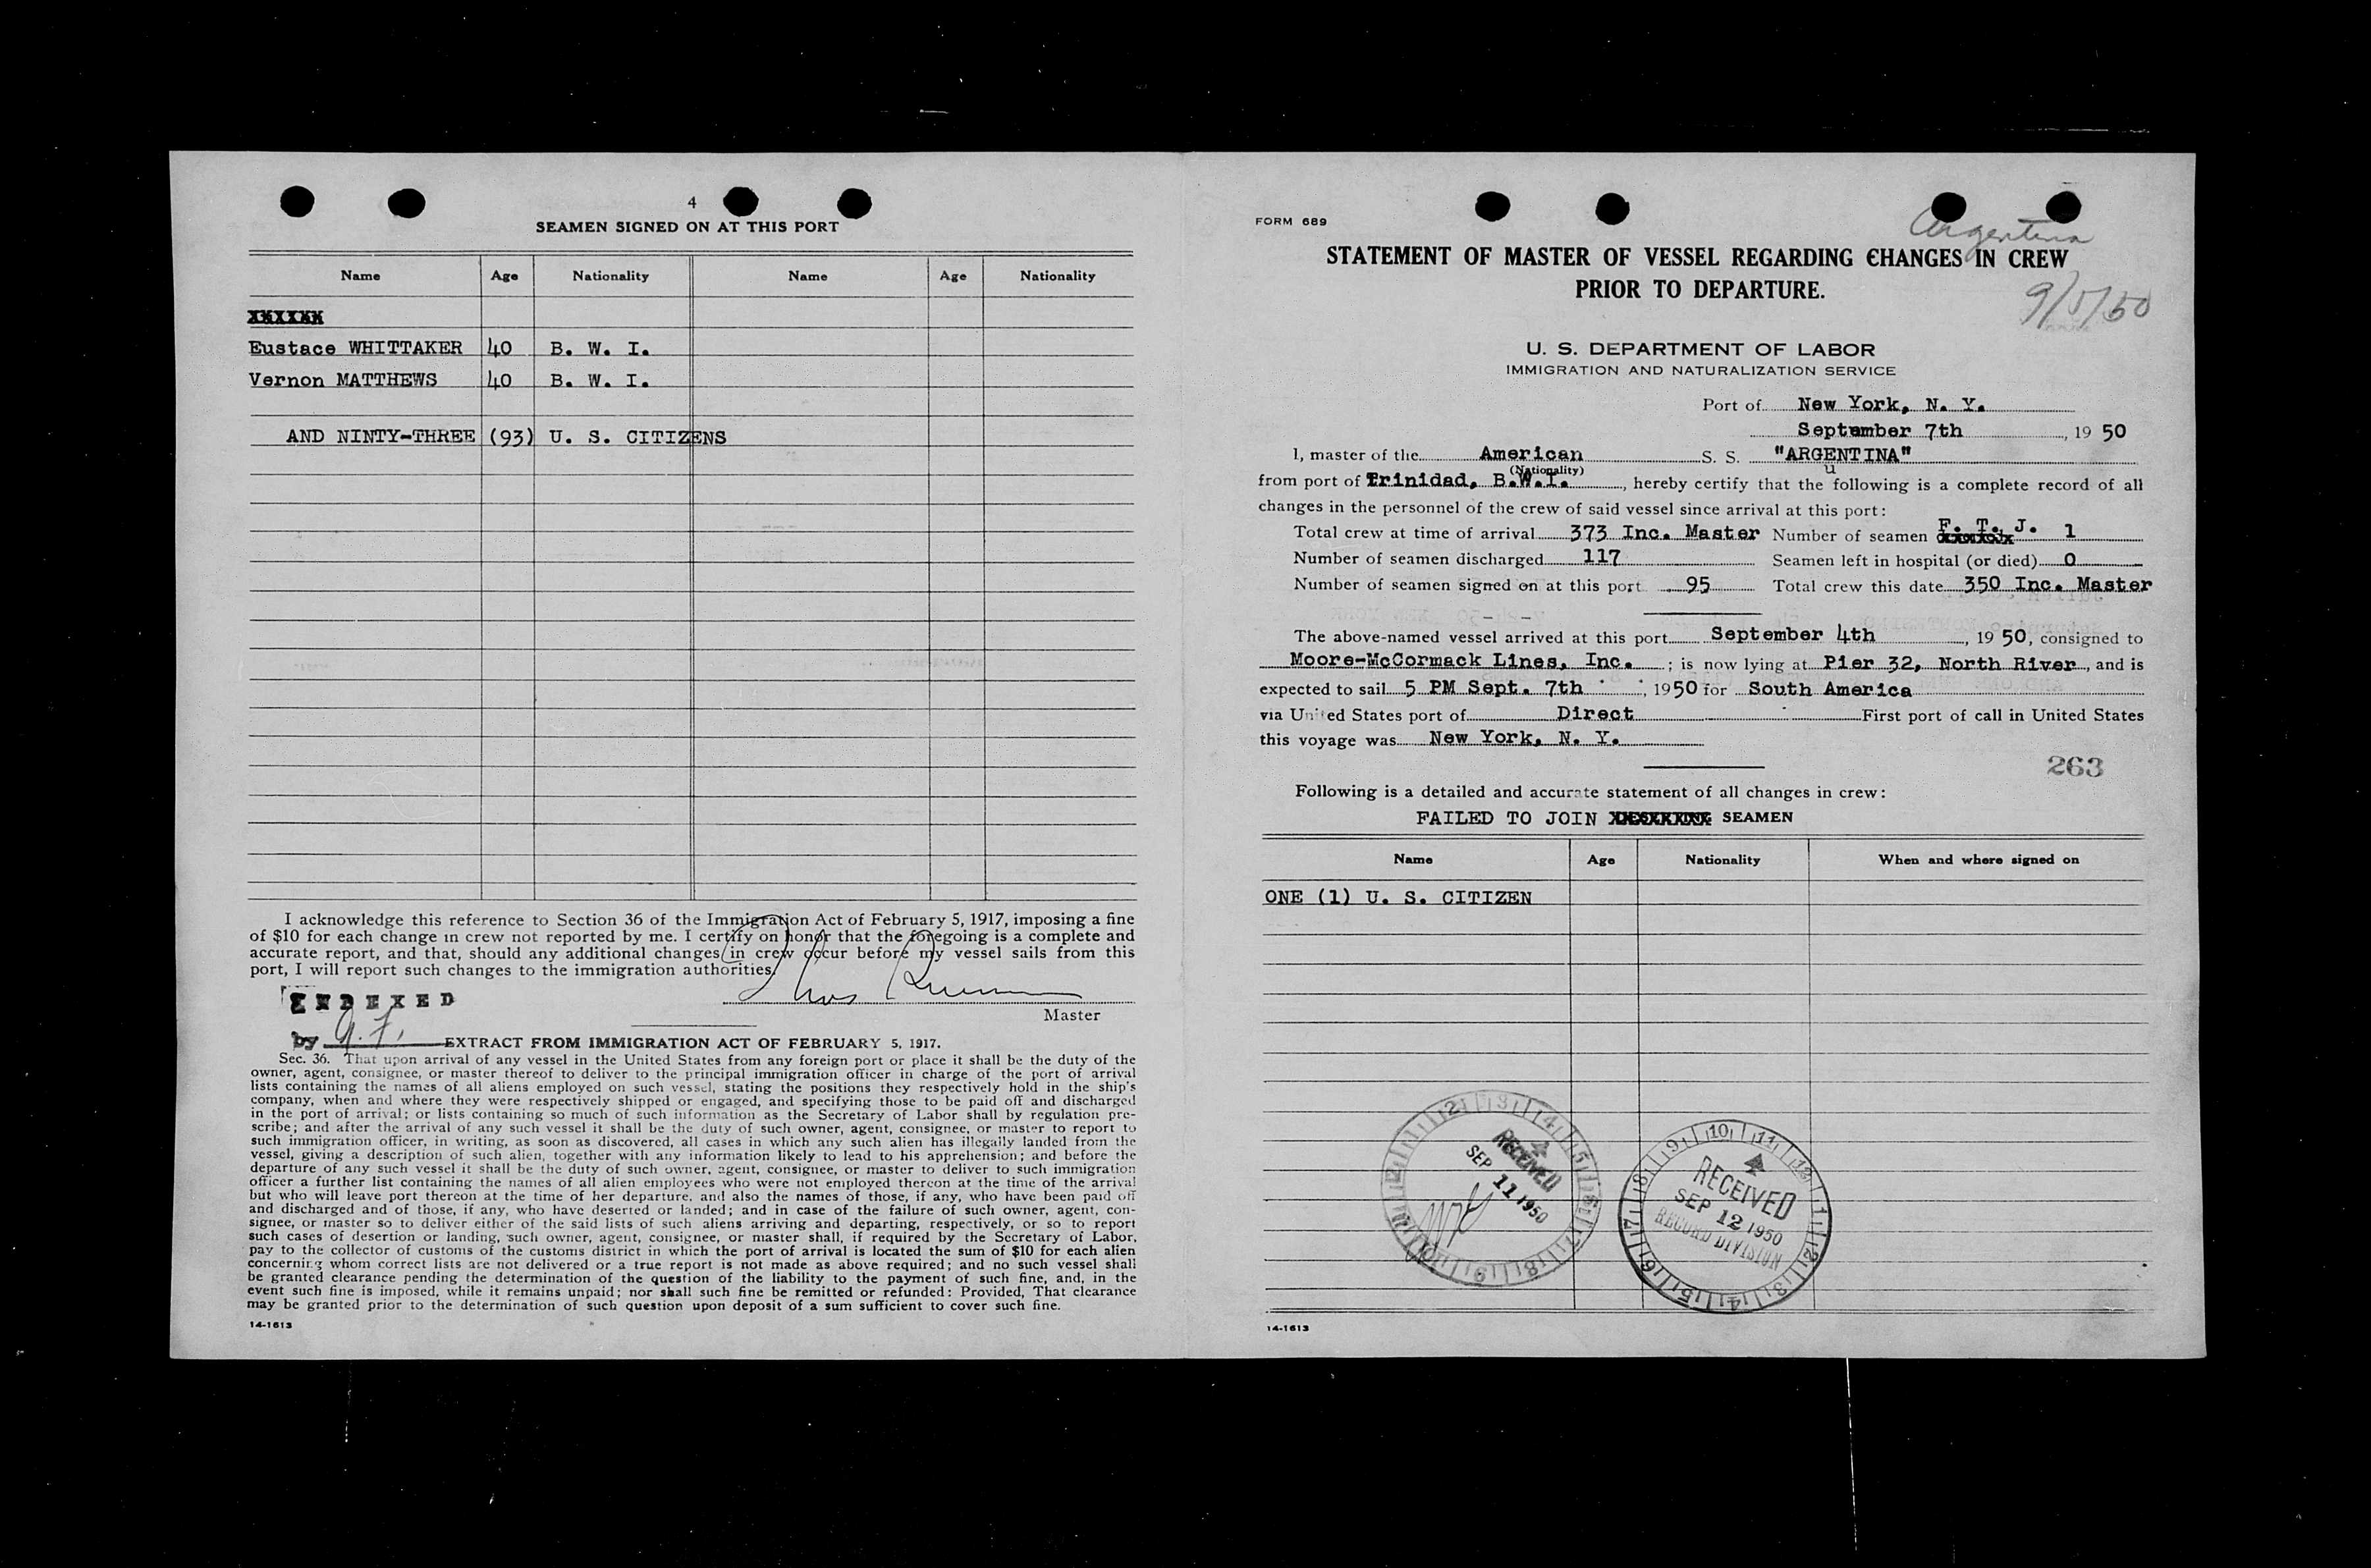 4
SEAMEN SIGNED ON AT THIS PORT
Name Age Nationality Name Age Nationality
XXXXXX
Eustace WHITTAKER 40 B. W. I.
Vernon MATTHEWS 40 B. W. I.
AND NINTY-THREE (93) U. S. CITIZENS
I acknowledge this reference to Section 36 of the Immigration Act of February 5, 1917, imposing a fine
of $10 for each change in crew not reported by me. I certify on honor that the foregoing is a complete and
accurate report, and that, should any additional changes in crew occur before my vessel sails from this
port, I will report such changes to the immigration authorities.
INDEXED
Master
by
EXTRACT FROM IMMIGRATION ACT OF FEBRUARY 5, 1917.
Sec. 36. That upon arrival of any vessel in the United States from any foreign port or place it shall be the duty of the
owner, agent, consignee, or master thereof to deliver to the principal immigration officer in charge of the port of arrival
lists containing the names of all aliens employed on such vessel, stating the positions they respectively hold in the ship's
company, when and where they were respectively shipped or engaged, and specifying those to be paid off and discharged
in the port of arrival; or lists containing so much of such information as the Secretary of Labor shall by regulation pre-
scribe; and after the arrival of any such vessel it shall be the duty of such owner, agent, consignee, or master to report to
such immigration officer, in writing, as soon as discovered, all cases in which any such alien has illegally landed from the
vessel, giving a description of such alien, together with any information likely to lead to his apprehension; and before the
departure of any such vessel it shall be the duty of such owner, agent, consignee, or master to deliver to such immigration
officer a further list containing the names of all alien employees who were not employed thereon at the time of the arrival
but who will leave port thereon at the time of her departure, and also the names of those, if any, who have been paid off
and discharged and of those, if any, who have deserted or landed; and in case of the failure of such owner, agent, con-
signee, or master so to deliver either of the said lists of such aliens arriving and departing, respectively, or so to report
such cases of desertion or landing, such owner, agent, consignee, or master shall, if required by the Secretary of Labor,
pay to the collector of customs of the customs district in which the port of arrival is located the sum of $10 for each alien
concerning whom correct lists are not delivered or a true report is not made as above required; and no such vessel shall
be granted clearance pending the determination of the question of the liability to the payment of such fine, and, in the
event such fine is imposed, while it remains unpaid; nor shall such fine be remitted or refunded: Provided, That clearance
may be granted prior to the determination of such question upon deposit of a sum sufficient to cover such fine.
14-1613
FORM 689
Argentina
STATEMENT OF MASTER OF VESSEL REGARDING CHANGES IN CREW
PRIOR TO DEPARTURE.
U. S. DEPARTMENT OF LABOR
IMMIGRATION AND NATURALIZATION SERVICE
Port of New York, N. Y.
September 7th, 19 50
I, master of the American S. S. "ARGENTINA"
(Nationality)
from port of Trinidad, B.W.I., hereby certify that the following is a complete record of all
changes in the personnel of the crew of said vessel since arrival at this port:
Total crew at time of arrival 373 Inc. Master Number of seamen F. T. J. 1
Number of seamen discharged 117 Seamen left in hospital (or died) 0
Number of seamen signed on at this port 95 Total crew this date 350 Inc. Master
The above-named vessel arrived at this port September 4th, 19 50, consigned to
Moore-McCormack Lines, Inc. ; is now lying at Pier 32, North River, and is
expected to sail 5 PM Sept. 7th, 1950 for South America
via United States port of Direct First port of call in United States
this voyage was New York, N. Y.
263
Following is a detailed and accurate statement of all changes in crew:
FAILED TO JOIN SEAMEN
Name Age Nationality When and where signed on
ONE (1) U. S. CITIZEN
RECEIVED
SEP 11 1950
RECEIVED
SEP 12 1950
RECORD DIVISION
14-1613